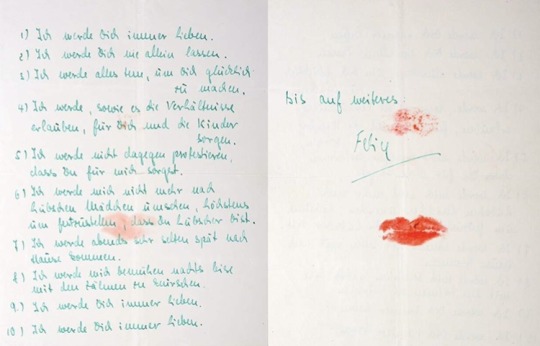 1) Ich werde Dich immer lieben.
2) Ich werde Dich nie allein lassen.
3) Ich werde alles tun, um Dich glücklich
zu machen.
4) Ich werde, sowie es die Verhältnisse
erlauben, für Dich und die Kinder
sorgen.
5) Ich werde nicht dagegen protestieren,
dass Du für mich sorgst.
6) Ich werde mich nicht mehr nach
hübschen Mädchen umsehen, höchstens
um festzustellen, dass Du hübscher bist.
7) Ich werde abends sehr selten spät nach
Hause kommen.
8) Ich werde mich bemühen nachts leise
mit den Zähnen zu knirschen.
9.) Ich werde Dich immer lieben.
10.) Ich werde Dich immer lieben.
Bis auf weiteres: